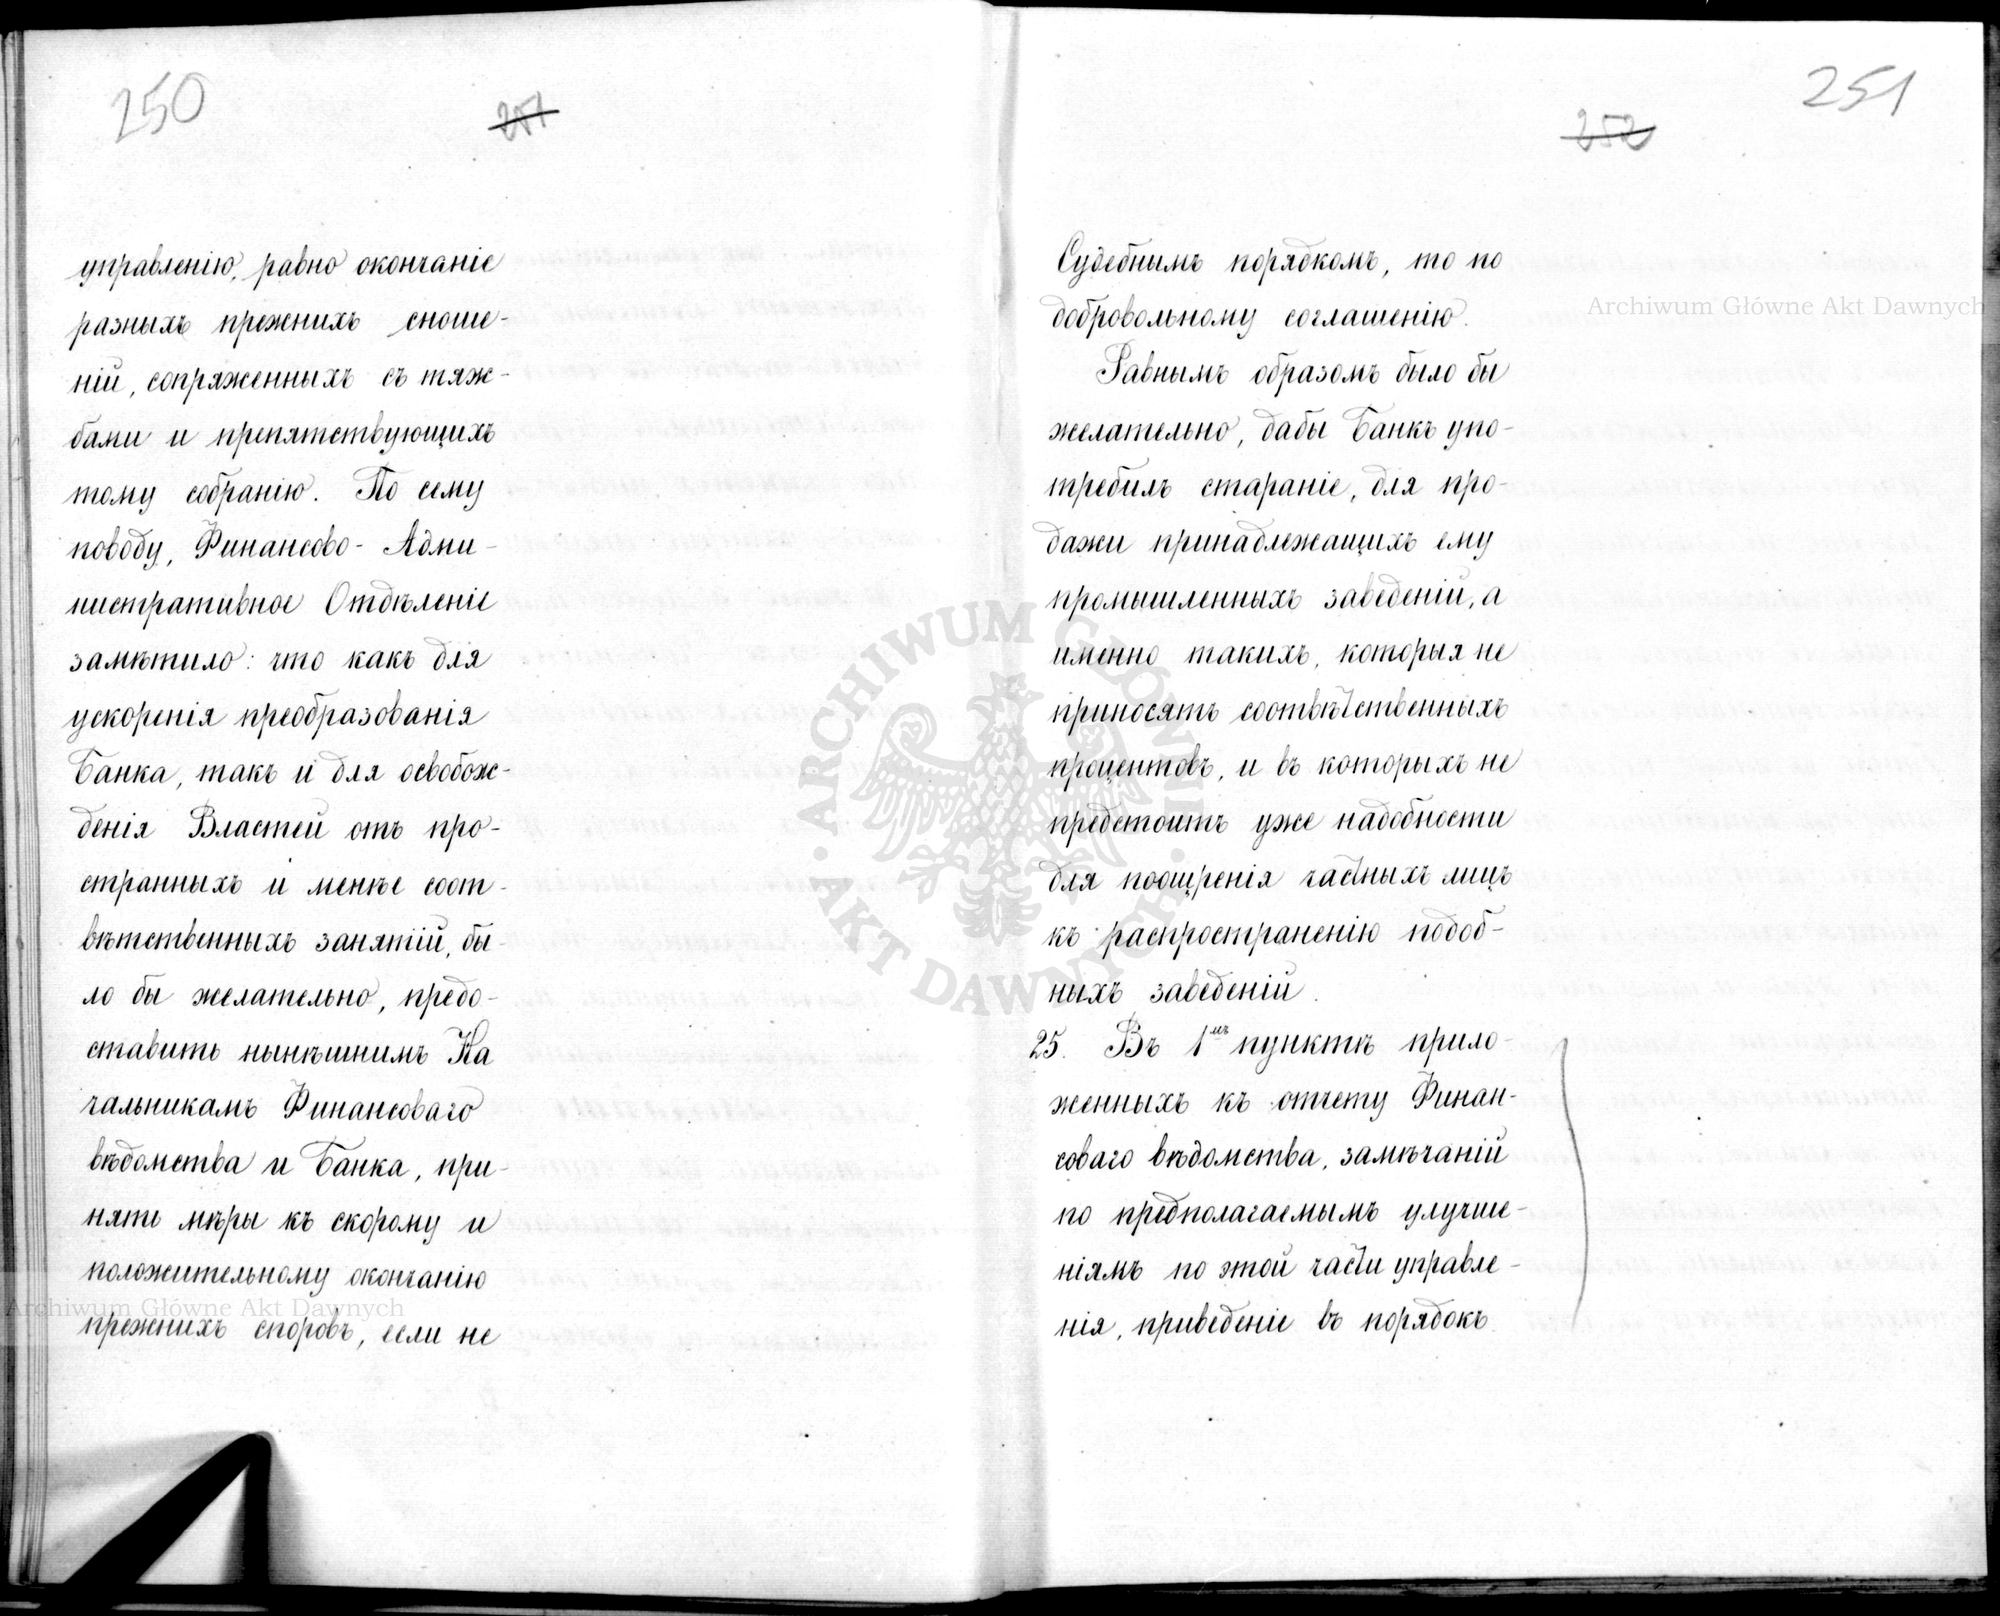 250
251
управленію, равно окончаніе
разныхъ прежнихъ сноше-
ній, сопряженныхъ съ тяж-
бами и препятствующихъ
тому собранію. По сему
поводу, Финансово-Адми-
нистративное Отдѣленіе
замѣтило: что какъ для
ускоренія преобразованія
Банка, такъ и для освобож-
денія Властей отъ про-
странныхъ и менѣе соот-
вѣтственныхъ занятій, бы-
ло бы желательно, предо-
ставить нынѣшнимъ На
чальникамъ Финансоваго
вѣдомства и Банка, при-
нять мѣры къ скорому и
положительному окончанію
прежнихъ споровъ, если не
Archiwum Główne Akt Dawnych
251
252
Судебнымъ порядкомъ, то по
добровольному соглашенію.
Archiwum Główne Akt Dawnych
Равнымъ образомъ было бы
желательно, дабы Банкъ упо-
требилъ стараніе, для про-
дажи принадлежащихъ ему
промышленныхъ заведеній, а
именно такихъ, которыя не
приносятъ соотвѣтственныхъ
процентовъ, и въ которыхъ не
предстоитъ уже надобности
для поощренія частныхъ лицъ
къ распространенію подоб-
ныхъ заведеній.
25. Въ 1мъ пунктѣ прило-
женныхъ къ отчету Финан-
соваго вѣдомства, замѣчаній
по предполагаемымъ улучше-
ніямъ по этой части управле-
нія, приведеніе въ порядокъ
ARCHIWUM GŁÓWNE · AKT DAWNYCH ·